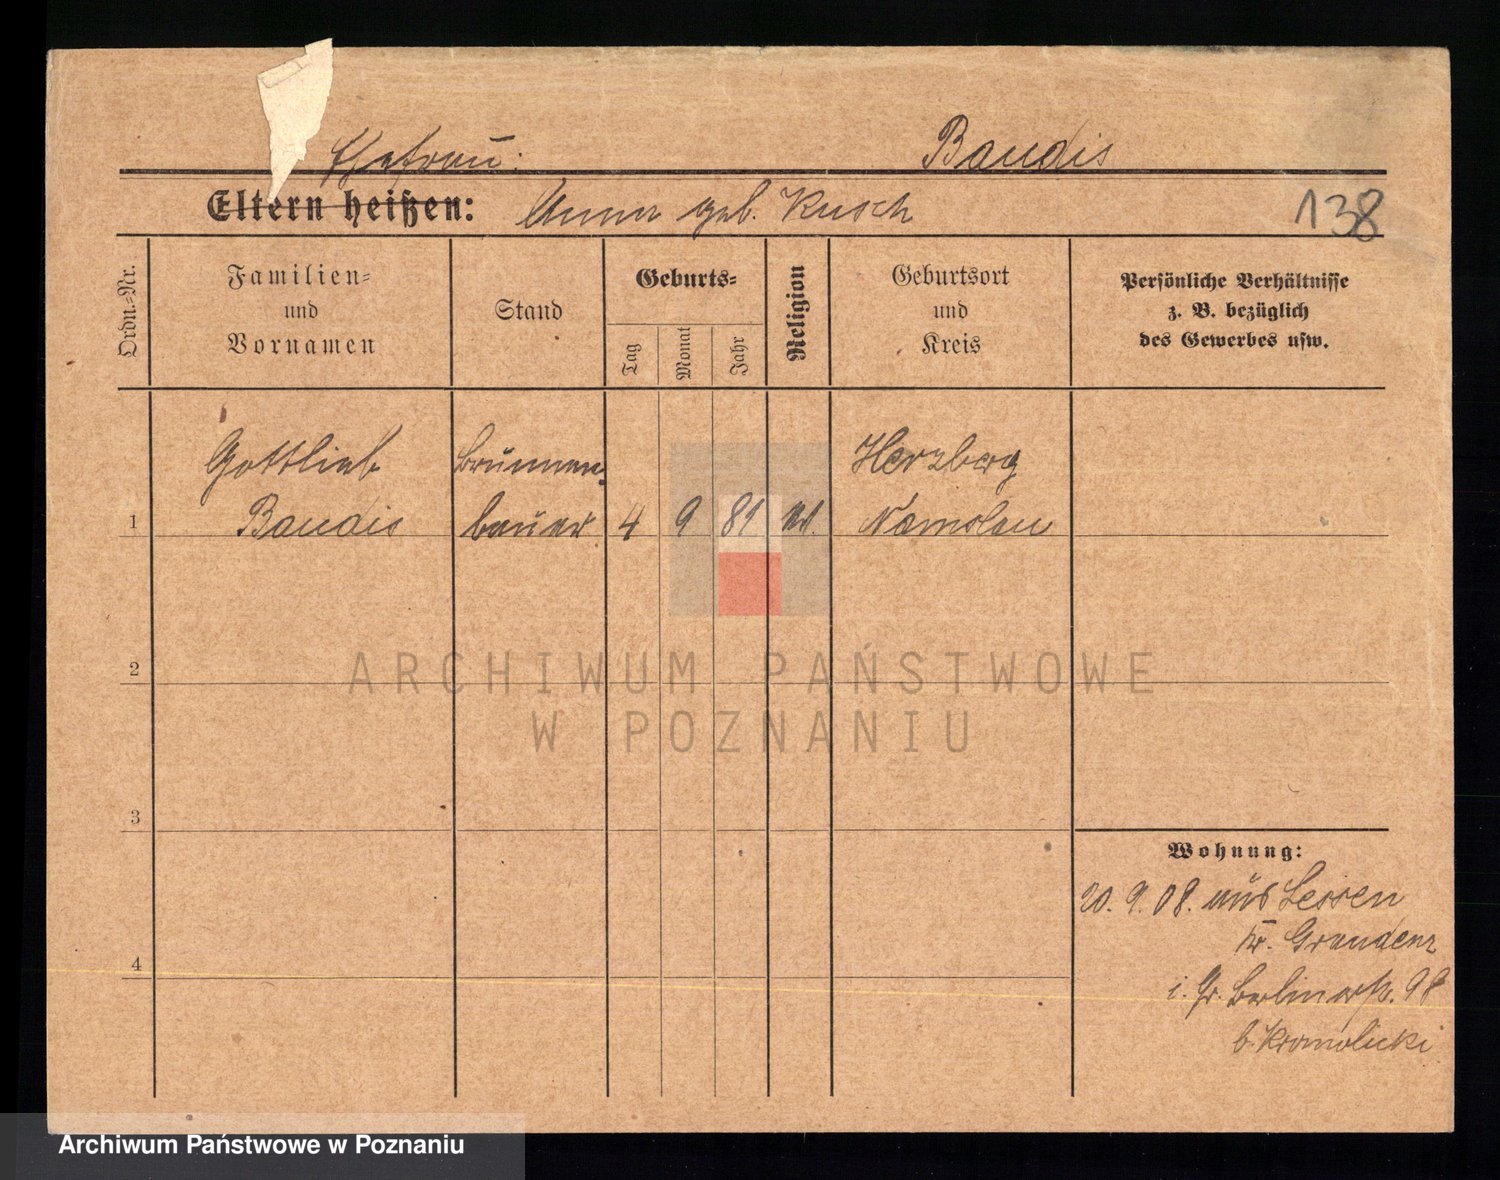 Ehefrau: Baudis
Eltern heißen: Anna geb. Kusch 138
Ordn.-Nr.
Familien-
und
Vornamen
Stand
Geburts-
Tag
Monat
Jahr
Religion
Geburtsort
und
Kreis
Persönliche Verhältnisse
z. B. bezüglich
des Gewerbes usw.
Gottlieb Brunnen- Herzberg
1 Baudis bauer 4 9 81 ev. Namslau
2
3
4
Wohnung:
20. 9. 08. aus Lessen
Kr. Graudenz
i. Gr. Berlinerstr. 98
b. Kromolicki
ARCHIWUM PAŃSTWOWE
W POZNANIU
Archiwum Państwowe w Poznaniu